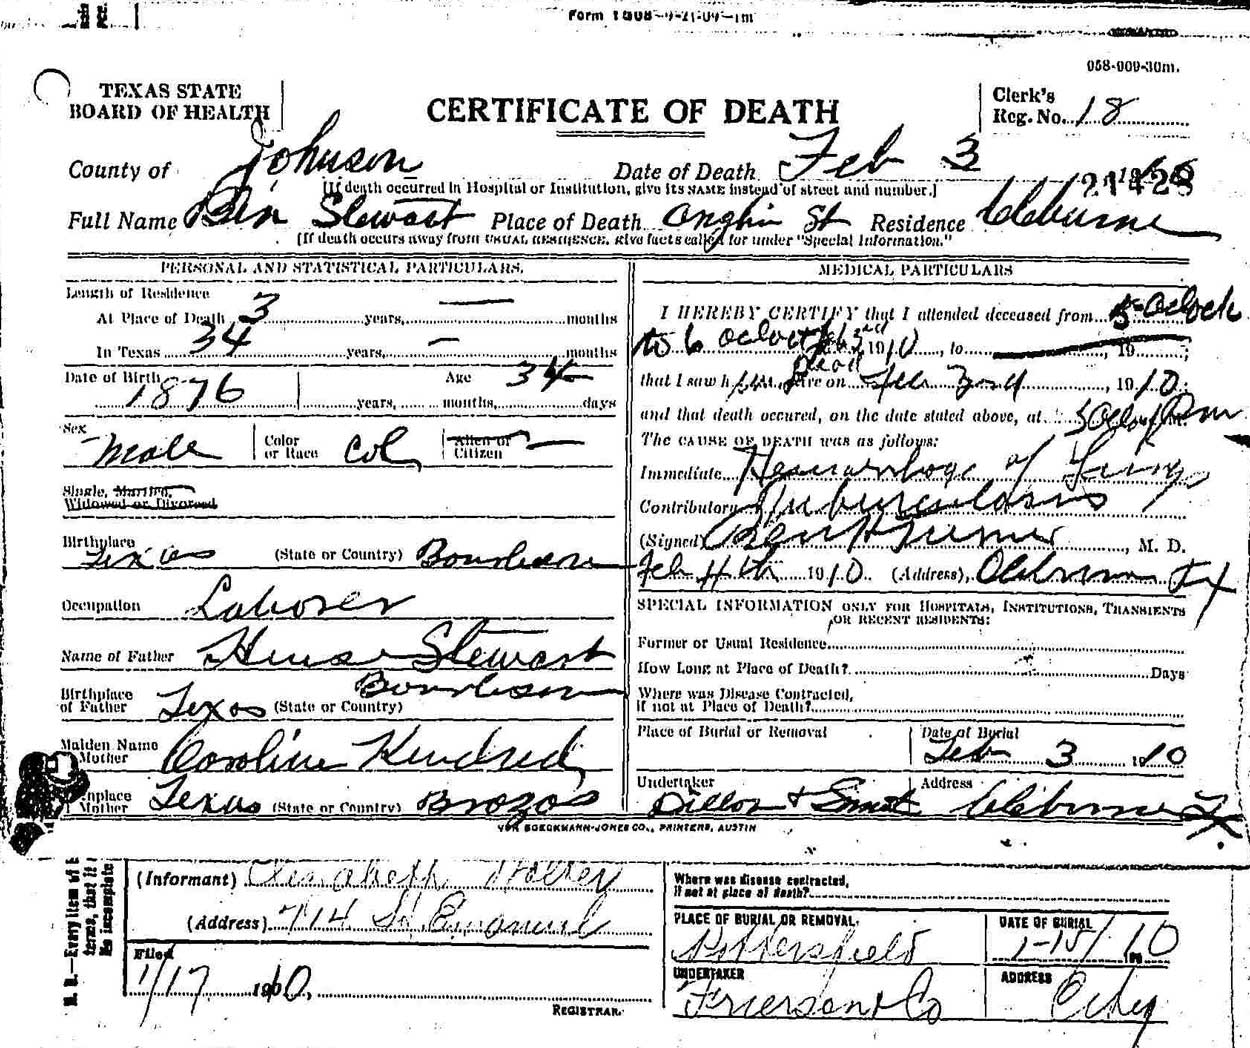 Form 1808-9-21-09-1m
058-909-30m.
TEXAS STATE
BOARD OF HEALTH
CERTIFICATE OF DEATH
Clerk's
Reg. No. 18
County of Johnson Date of Death Feb 3 19
21428
[If death occurred in Hospital or Institution, give its NAME instead of street and number.]
Full Name Ben Stewart Place of Death Anglin St Residence Cleburne
[If death occurs away from USUAL RESIDENCE, give facts called for under "Special Information."
PERSONAL AND STATISTICAL PARTICULARS.
Length of Residence
At Place of Death 3 years, — months
In Texas 34 years, — months
Date of Birth 1876 Age 34
years, months, days
Sex Male Color or Race Col Alien or Citizen
Single, Married,
Widowed or Divorced
Birthplace
Texas (State or Country) Bourleson
Occupation Laborer
Name of Father Stewart
Birthplace of Father Texas (State or Country) Bourleson
Maiden Name Mother Caroline Kendred
Mother Texas (State or Country) Brazos
MEDICAL PARTICULARS
I HEREBY CERTIFY that I attended deceased from 5-Oclock
to 6 Oclock Feb 3rd 1910, to 19 ;
that I saw h alive dead on Feb 3rd, 1910;
and that death occured, on the date stated above, at 5 Oclock Pm M.
The CAUSE OF DEATH was as follows:
Immediate Hemorrhage of Lung
Contributory Tuberculosis
(Signed) Ben H Turner, M. D.
Feb 4th 1910. (Address), Cleburne Tx
SPECIAL INFORMATION ONLY FOR HOSPITALS, INSTITUTIONS, TRANSIENTS
OR RECENT RESIDENTS:
Former or Usual Residence
How Long at Place of Death? Days
Where was Disease Contracted,
if not at Place of Death?
Place of Burial or Removal Date of Burial
Feb 3 1910
Undertaker Address
Dillon & Smith Cleburne Tx
VON BOECKMANN-JONES CO., PRINTERS, AUSTIN
N. B.—Every item of
terms, that it
No incomplete
(Informant) Elizabeth Walker
(Address) 714 St Emanuel
Filed
1/17 1910,
REGISTRAR.
Where was disease contracted,
if not at place of death?
PLACE OF BURIAL OR REMOVAL. DATE OF BURIAL
Pottersfield 1-15/10
UNDERTAKER ADDRESS
Frierson & Co City